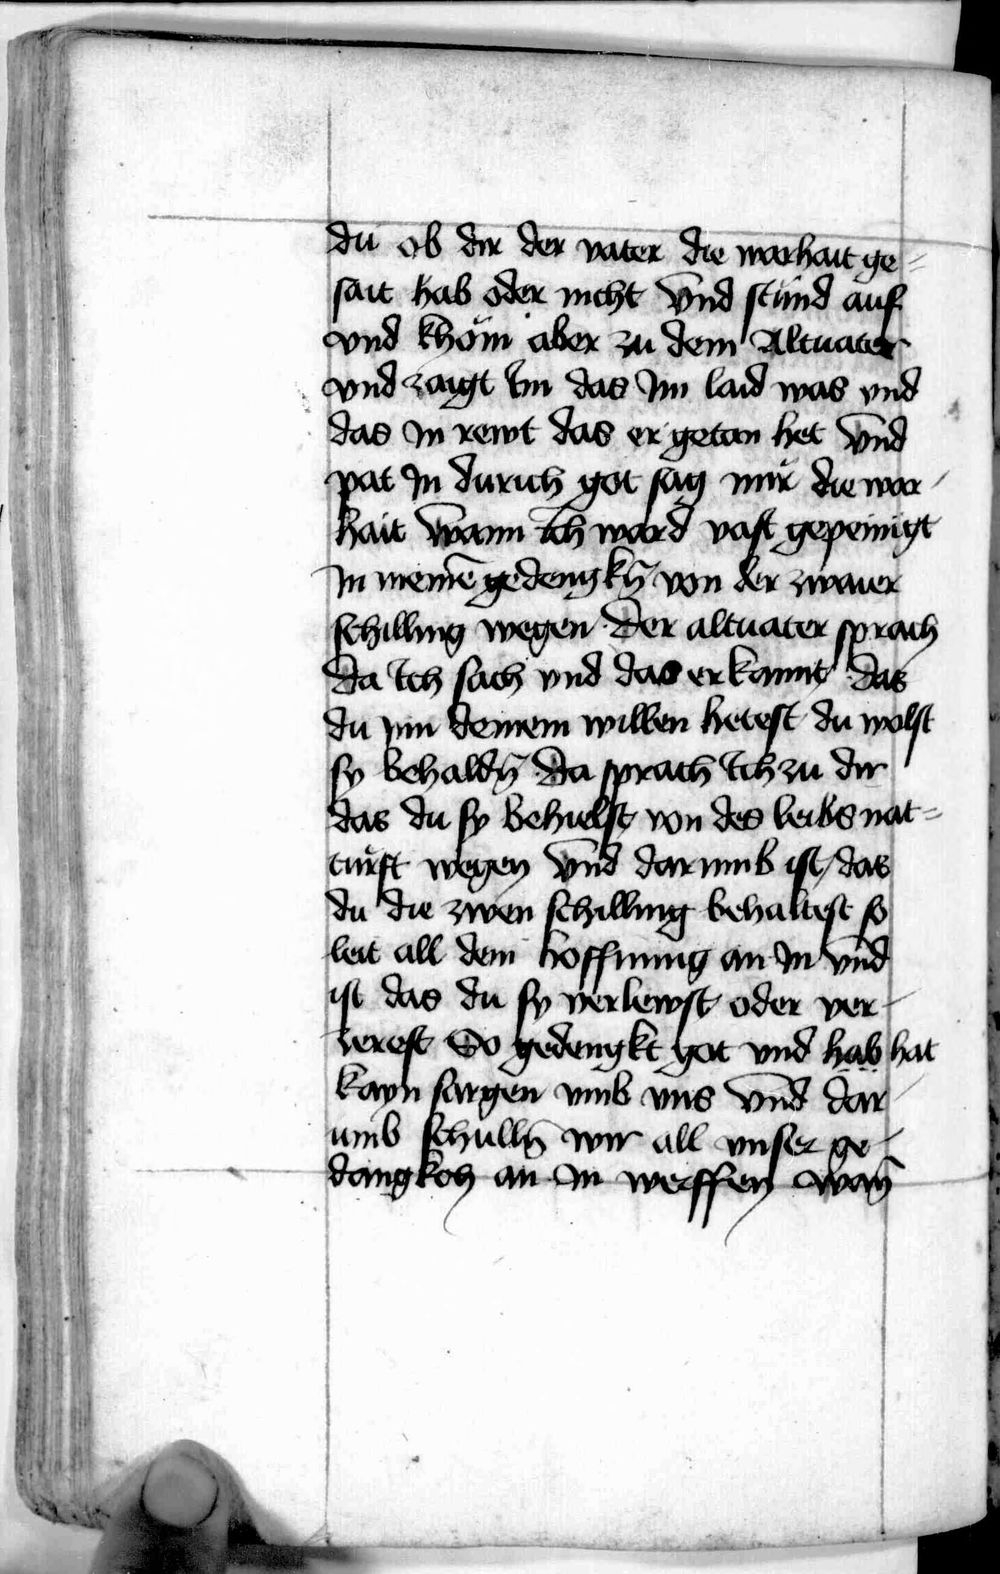 du ob dir der vater die warhait ge=
sait hab oder nicht Vnd stůnd auf
vnd khöm aber zu dem Altuater
vnd zaigt Im das Im laid was vnd
das In rewt das er getan het Vnd
pat In durich got sag mir die war-
hait Wann Ich ward vast gepeinigt
In meinē gedengkñ von der zwaier
schilling wegen Der altuater sprach
Da Ich sach vnd das erkannt das
du inn deinem willen hetest du wolst
sy behaldñ Da sprach Ich zu dir
das du sy behielst von des leibs nat=
turft wegen Vnd darumb ist das
du die zwen schilling behaltest so
leit all dein hoffnung an In vnd
ist das du sy verlewst oder ver-
zerest So gedengkt got vnd hab hat
kayn sargen vmb vns Vnd dar-
umb schullñ wir all vnser ge-
dangkch an In werffen Wañ